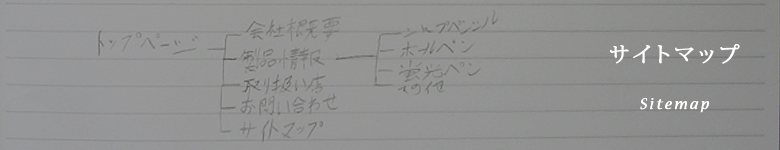 トップページ
会社概要
製品情報
取り扱い店
お問い合わせ
サイトマップ
シャープペンシル
ボールペン
蛍光ペン
その他
サイトマップ
Sitemap